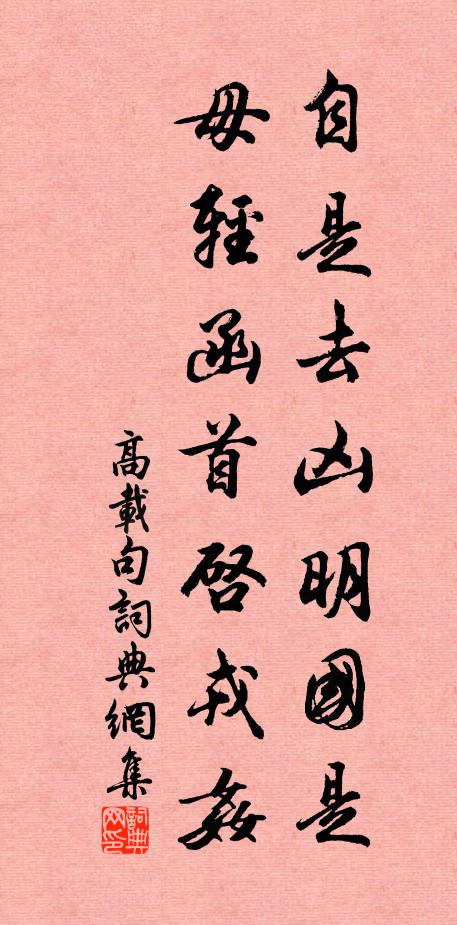 自是去凶明國是
毋輕函首啓戎姦
高載句詞典網集
詞典网印